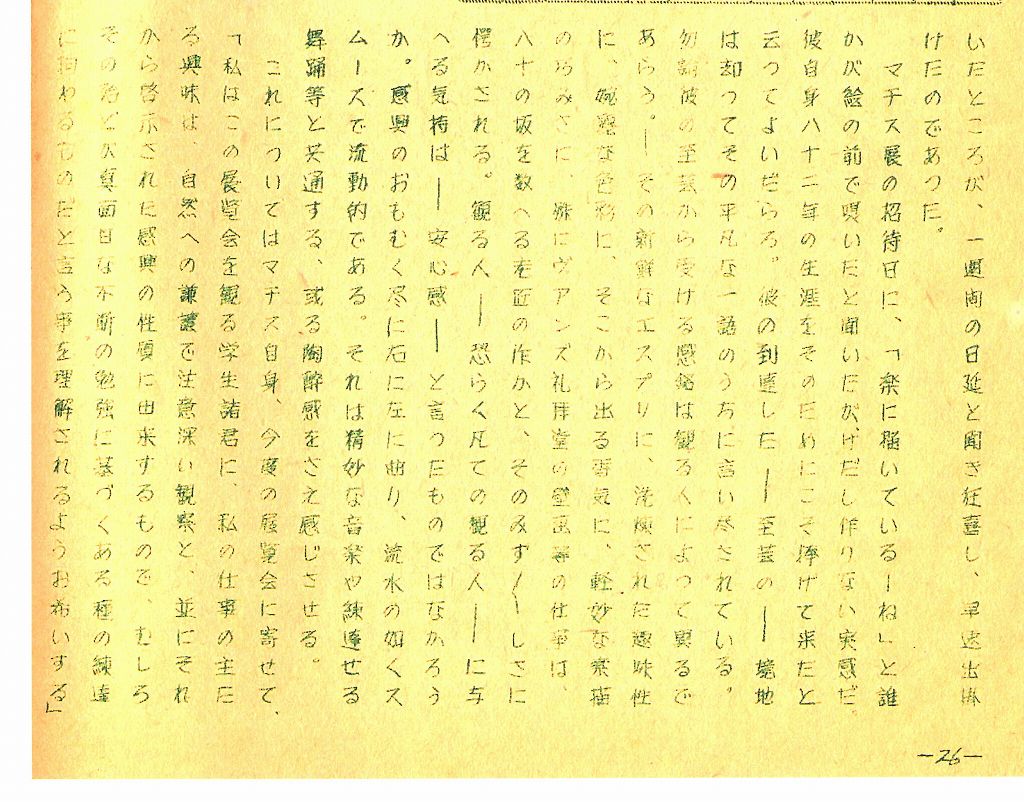 いたところが、一週間の日延と聞き狂喜し、早速出掛
けたのであつた。
マチス展の招待日に、「楽に描いているーね」と誰
かが絵の前で唄いたと聞いたが、けだし作りない実感だ。
彼自身八十二年の生涯をそのためにこそ捧げて来たと
云つてよいだらろ。彼の到達した―至芸の―境地
は却つてその平凡な一語のうちに言い尽されている。
勿論彼の至芸から受ける感銘は観る人によつて異るで
あらう。―その新鮮なエスプリに、洗煉された趣味性
に、婉麗な色彩に、そこから出る雰気に、軽妙な素描
のうみさに、殊にヴアンズ礼拝堂の壁画等の仕事は、
八十の坂を数へる老匠の作かと、そのみず〳〵しさに
愕かされる。観る人―恐らく凡ての観る人―に与
へる気持は―安心感―と言つたものではなかろう
か。感興のおもむく尽に右に左に曲り、流水の如くス
ムースで流動的である。それは精妙な音楽や練達せる
舞踊等と共通する、或る陶酔感をさえ感じさせる。
これについてはマチス自身、今度の展覧会に寄せて、
「私はこの展覧会を観る学生諸君に、私の仕事の主た
る興味は、自然への謙譲で注意深い観察と、並にそれ
から啓示された感興の性質に由来するもので、むしろ
その殆どが真面目な不断の勉強に基づくある種の練達
に拘わるものだと言う事を理解されるようお希いする」
―26―